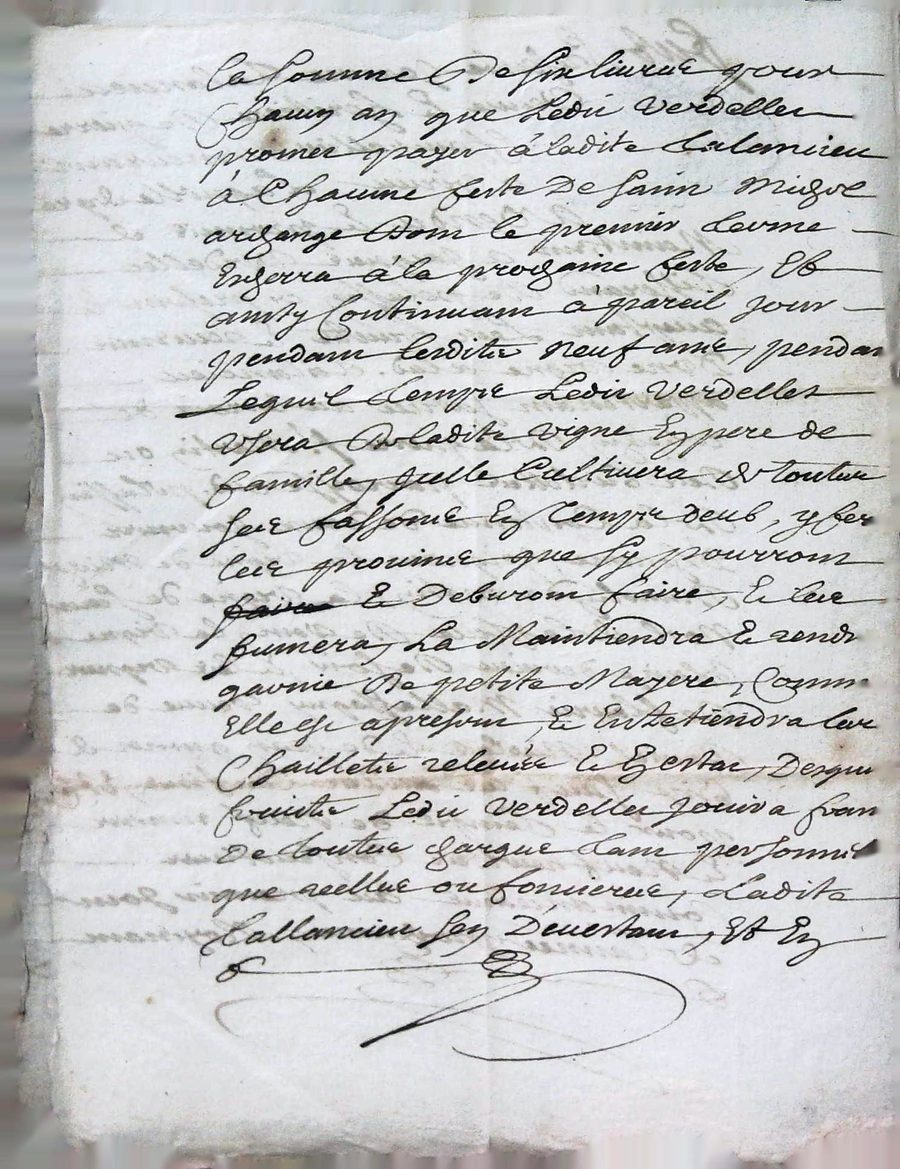 la somme de six livres pour
chacun an que ledit Verdellet
promet payer à ladite Lalancieu
à chacune feste de saint Michel
archange dont le premier terme
Escherra à la prochaine feste, Et
ainsy Continuant à pareil jour
pendant lesdites neuf années, pendant
Lequel temps Ledit Verdellet
usera de ladite vigne En pere de
famille, qu'elle Cultivera de toutes
ses fassons En temps deub, y fer
les provins que s'y pourront
faire Et Deburont faire, Et les
fumera, La Maintiendra Et rendr
garnie de petite Mayere, Comm
Elle est àpresent, Et Entretiendra les
Chaillettes relevées Et En estat, Desqu
fruits Ledit Verdellet jouira fran
de toutes charges tant personnel
que reelles ou foncieres, Ladite
Lallancieu s'en Devestant, Et En